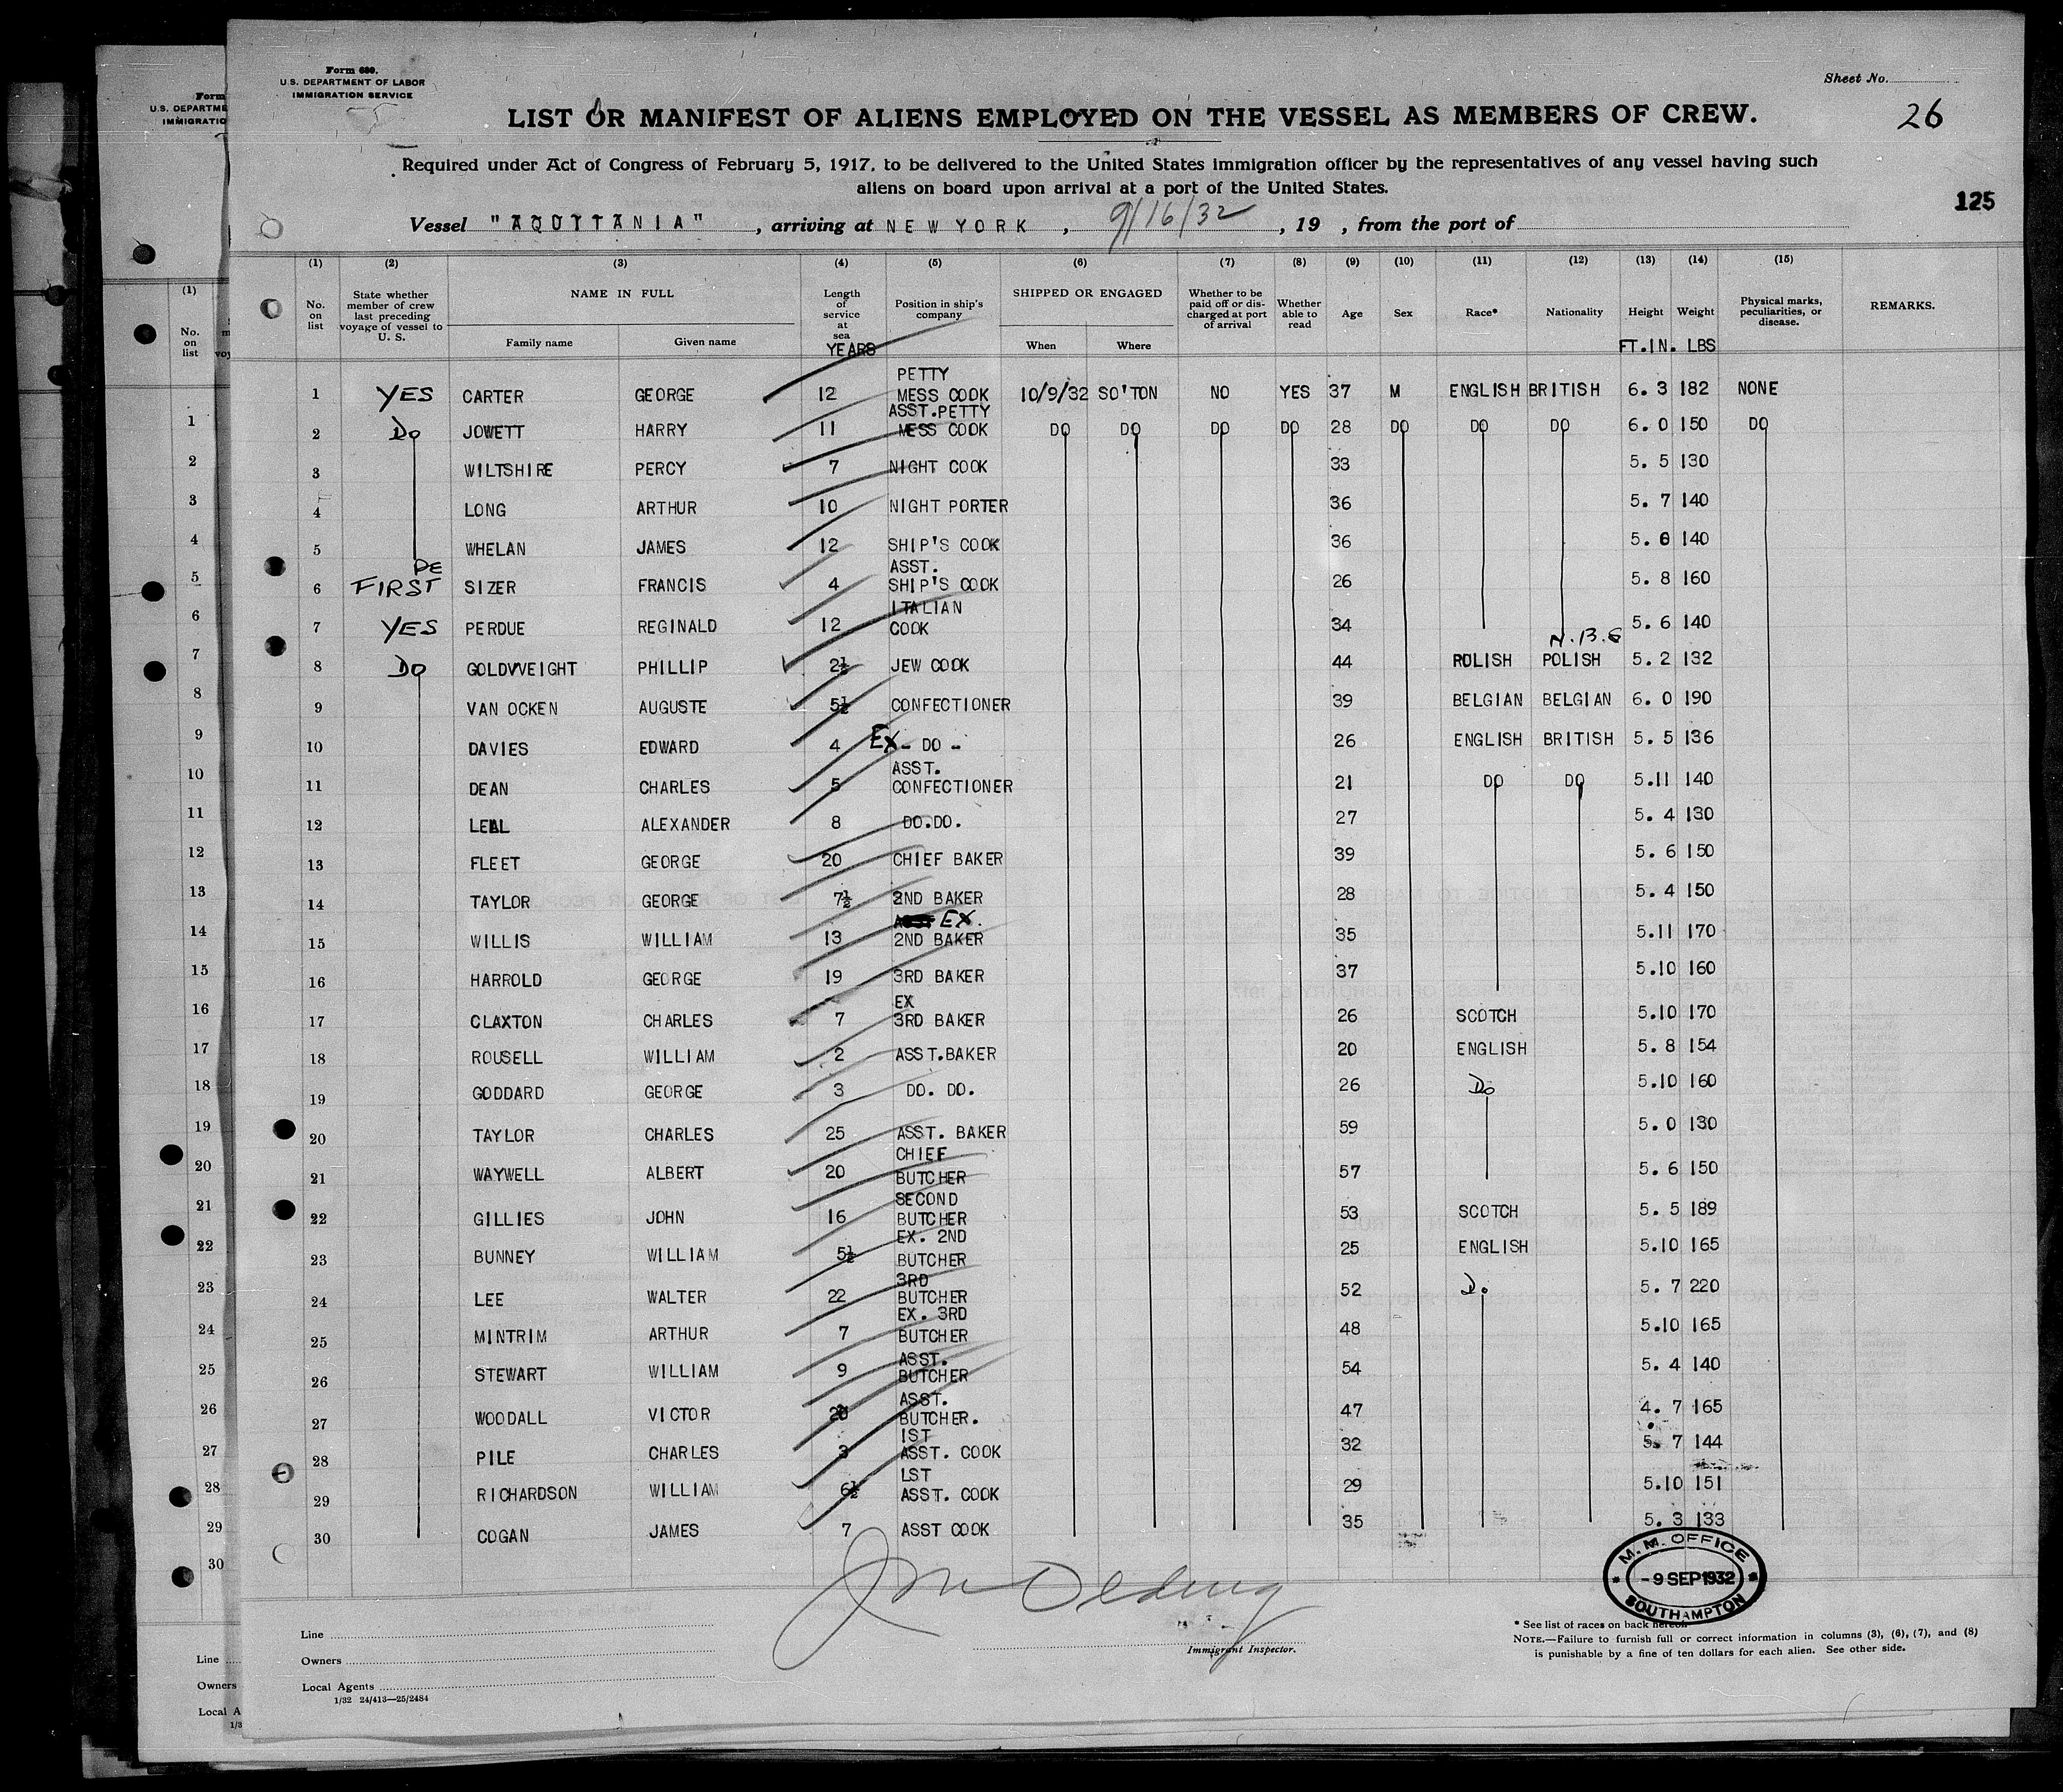 Form 680.
U.S. DEPARTMENT OF LABOR
IMMIGRATION SERVICE
Sheet No.
26
LIST OR MANIFEST OF ALIENS EMPLOYED ON THE VESSEL AS MEMBERS OF CREW.
Required under Act of Congress of February 5, 1917, to be delivered to the United States immigration officer by the representatives of any vessel having such
aliens on board upon arrival at a port of the United States.
125
Vessel "AQUITANIA", arriving at NEW YORK, 9/16/32, 19 , from the port of
(1) (2) (3) (4) (5) (6) (7) (8) (9) (10) (11) (12) (13) (14) (15)
No. on list
State whether member of crew last preceding voyage of vessel to U. S.
NAME IN FULL
Family name Given name
Length of service at sea
YEARS
Position in ship's company
SHIPPED OR ENGAGED
When Where
Whether to be paid off or discharged at port of arrival
Whether able to read
Age
Sex
Race*
Nationality
Height
FT.IN.
Weight
LBS
Physical marks, peculiarities, or disease.
REMARKS.
1 YES CARTER GEORGE 12 PETTY MESS COOK 10/9/32 SO'TON NO YES 37 M ENGLISH BRITISH 6. 3 182 NONE
2 Do JOWETT HARRY 11 ASST.PETTY MESS COOK DO DO DO DO 28 DO DO DO 6. 0 150 DO
3 WILTSHIRE PERCY 7 NIGHT COOK 33 5. 5 130
4 LONG ARTHUR 10 NIGHT PORTER 36 5. 7 140
5 WHELAN JAMES 12 SHIP'S COOK 36 5. 140
6 FIRST SIZER FRANCIS 4 ASST. SHIP'S COOK 26 5. 8 160
7 YES PERDUE REGINALD 12 ITALIAN COOK 34 5. 6 140
8 Do GOLDWEIGHT PHILLIP 2½ JEW COOK 44 POLISH POLISH 5. 2 132
9 VAN OCKEN AUGUSTE 5½ CONFECTIONER 39 BELGIAN BELGIAN 6. 0 190
10 DAVIES EDWARD 4 EX - DO - 26 ENGLISH BRITISH 5. 5 136
11 DEAN CHARLES 5 ASST. CONFECTIONER 21 DO DO 5.11 140
12 ALEXANDER 8 DO.DO. 27 5. 4 130
13 FLEET GEORGE 20 CHIEF BAKER 39 5. 6 150
14 TAYLOR GEORGE 7½ 2ND BAKER 28 5. 4 150
15 WILLIS WILLIAM 13 EX. 2ND BAKER 35 5.11 170
16 HARROLD GEORGE 19 3RD BAKER 37 5.10 160
17 CLAXTON CHARLES 7 EX 3RD BAKER 26 SCOTCH 5.10 170
18 ROUSELL WILLIAM 2 ASST.BAKER 20 ENGLISH 5. 8 154
19 GODDARD GEORGE 3 DO. DO. 26 Do 5.10 160
20 TAYLOR CHARLES 25 ASST. BAKER 59 5. 0 130
21 WAYWELL ALBERT 20 CHIEF BUTCHER 57 5. 6 150
22 GILLIES JOHN 16 SECOND BUTCHER 53 SCOTCH 5. 5 189
23 BUNNEY WILLIAM 5½ EX. 2ND BUTCHER 25 ENGLISH 5.10 165
24 LEE WALTER 22 3RD BUTCHER 52 Do 5. 7 220
25 MINTRIM ARTHUR 7 EX. 3RD BUTCHER 48 5.10 165
26 STEWART WILLIAM 9 ASST. BUTCHER 54 5. 4 140
27 WOODALL VICTOR ASST. BUTCHER. 47 4. 7 165
28 PILE CHARLES 3 1ST ASST. COOK 32 5. 7 144
29 RICHARDSON WILLIAM 6½ LST ASST. COOK 29 5.10 151
30 COGAN JAMES 7 ASST COOK 35 5. 3 133
M. M. OFFICE
-9 SEP 1932
SOUTHAMPTON
Line
Owners
Local Agents
1/32 24/413—25/2484
Immigrant Inspector.
* See list of races on back hereon
NOTE.—Failure to furnish full or correct information in columns (3), (6), (7), and (8)
is punishable by a fine of ten dollars for each alien. See other side.